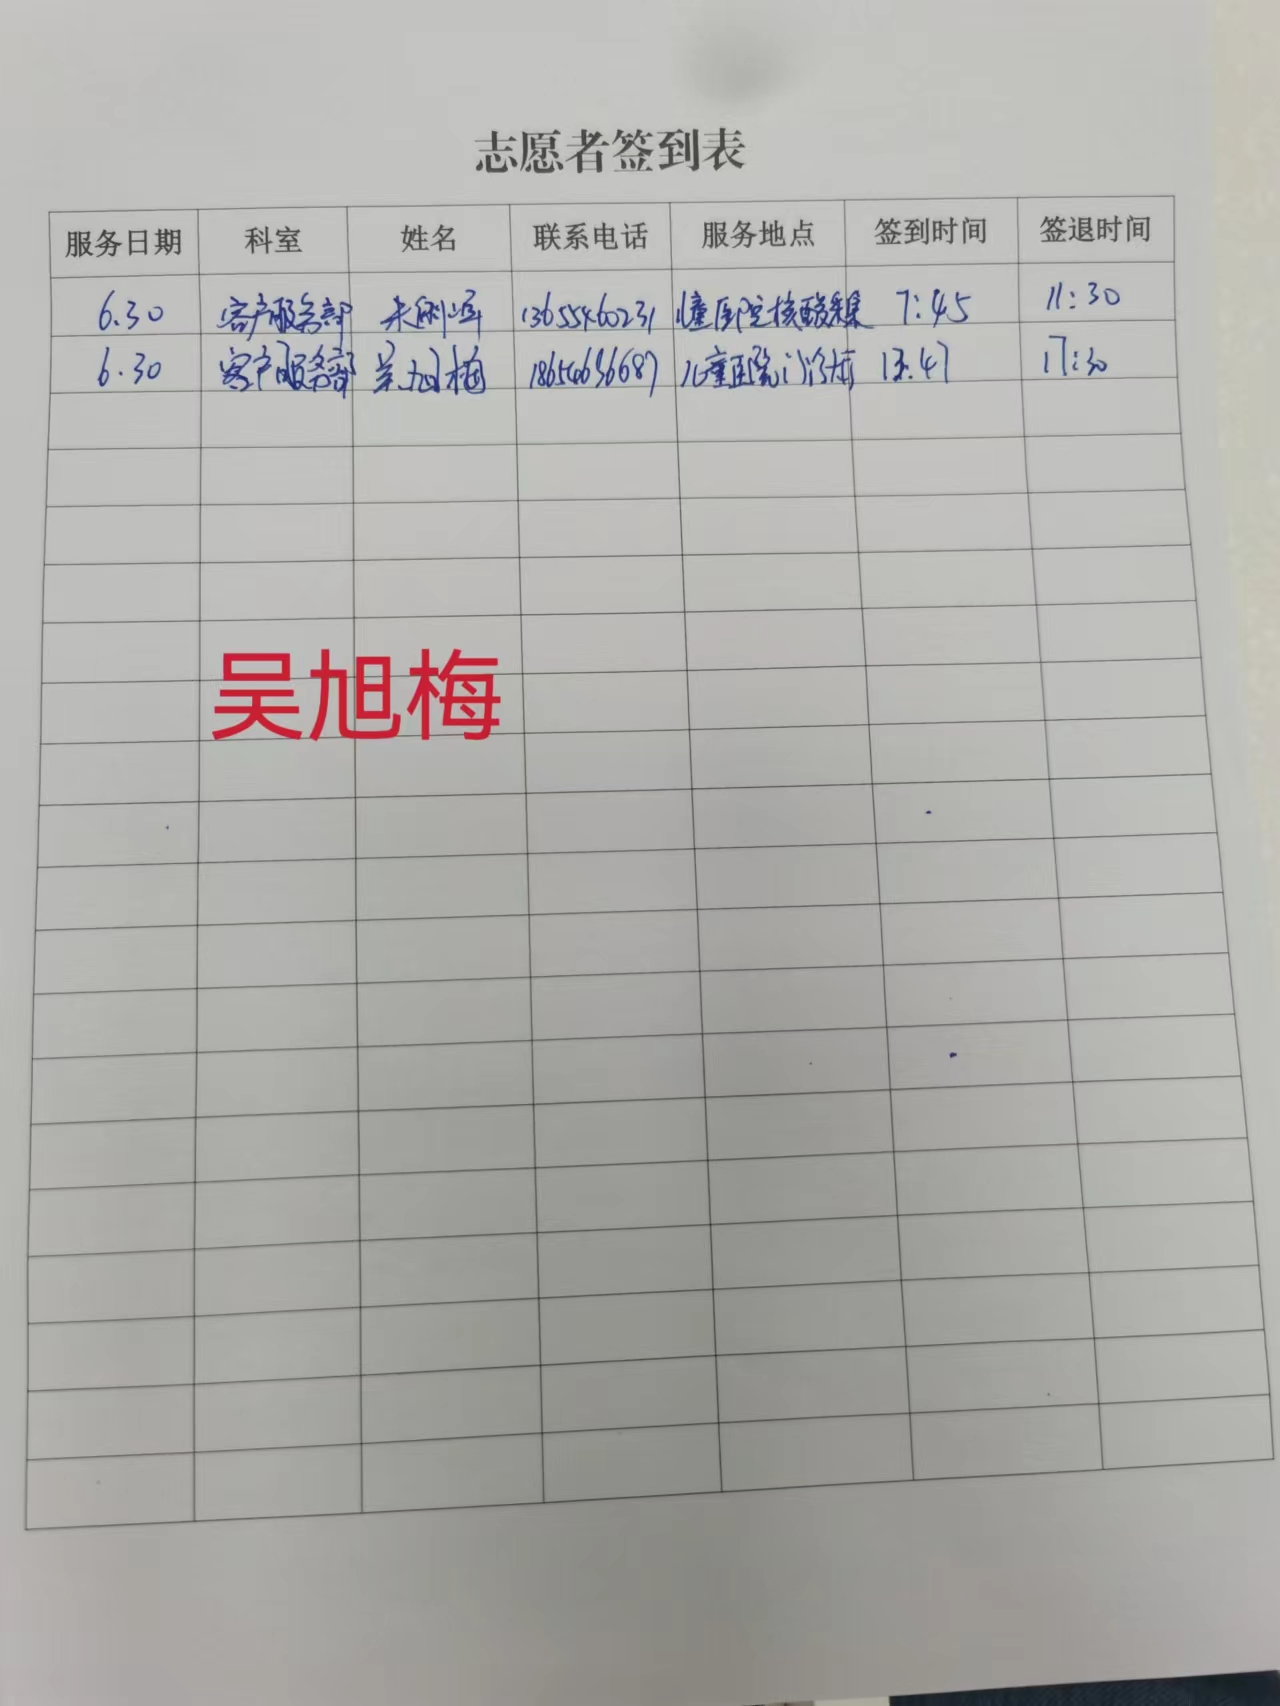 志愿者签到表
服务日期 科室 姓名 联系电话 服务地点 签到时间 签退时间
6.30 客户服务部 13655460231 儿童医院核酸采集 7:45 11:30
6.30 客户服务部 吴旭梅 儿童医院门诊 13:47 17:30
吴旭梅